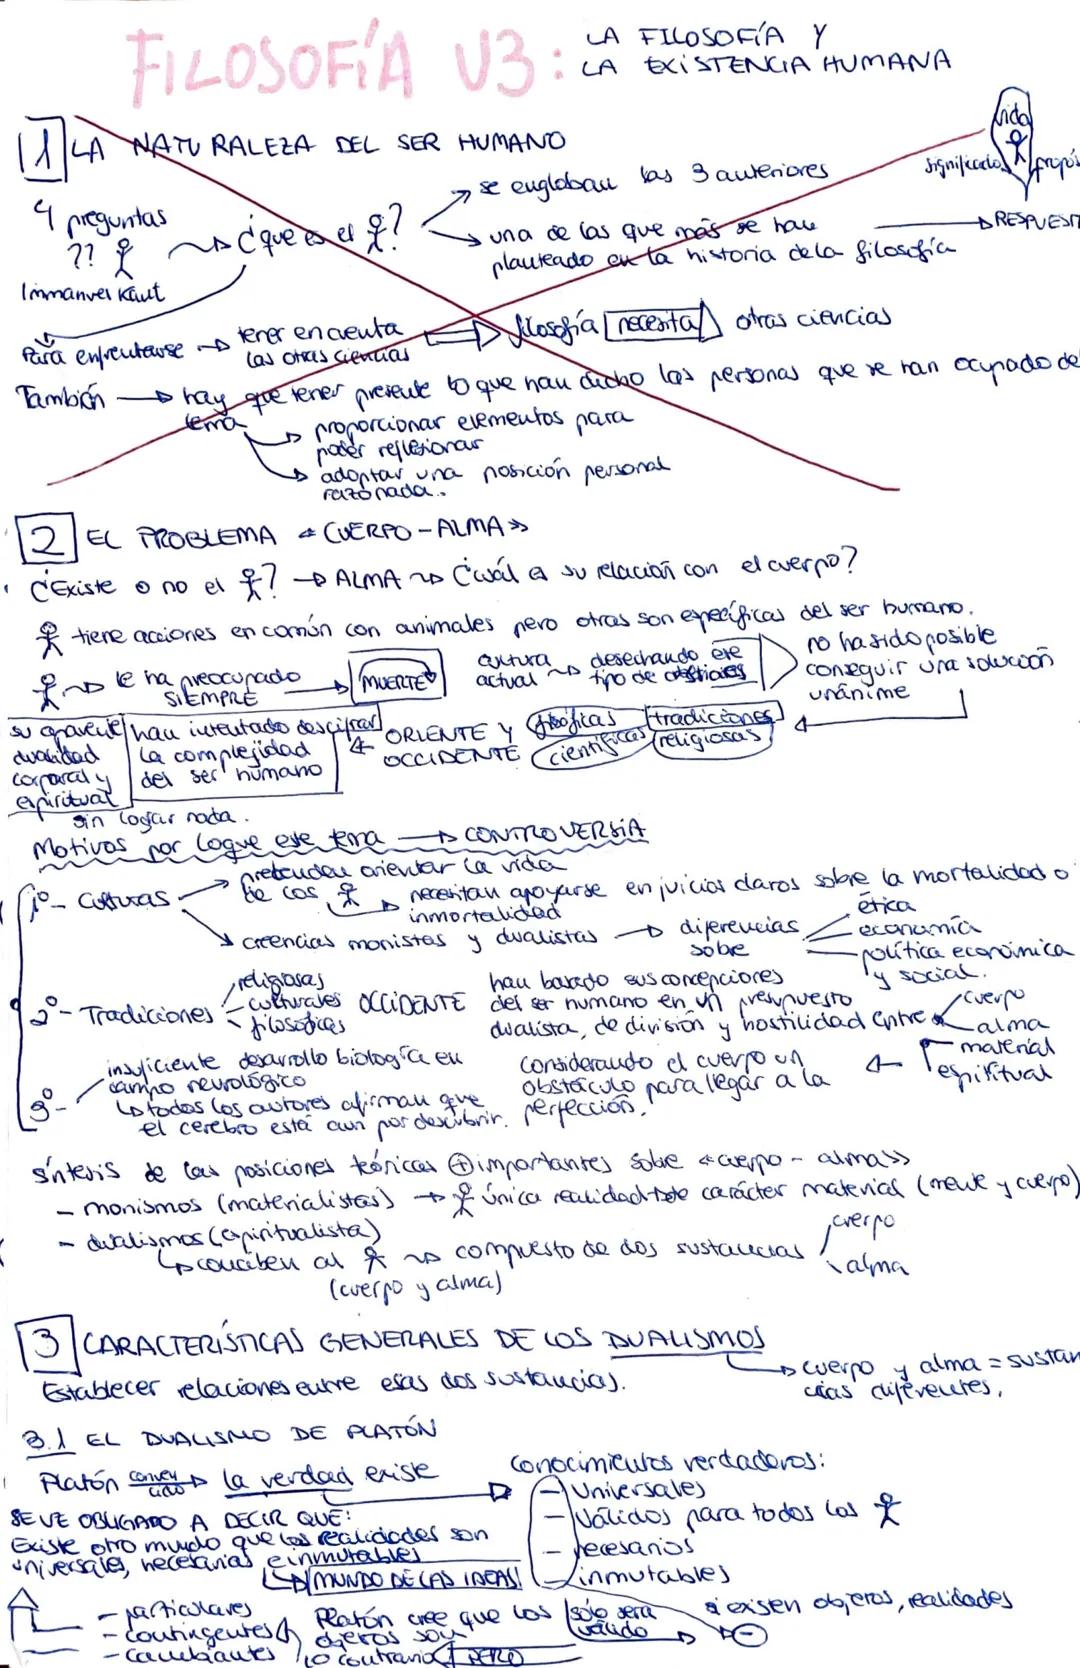 FILOSOFÍA U3: LA FILOSOFÍA Y
LA EXISTENCIA HUMANA
1 LA NATURALEZA DEL SER HUMANO
vida
significado
4 preguntas
??
Immanuel Kant
¿que es el ?
se engloban las 3 anteriores
una de las que más se han
planteado en la historia de la filosofía
Para enfrentarse
tener en cuenta
las otras ciencias
filosofía necesita otras ciencias
También hay que tener presente lo que han dicho las personas que se han ocupado del
tema
proporcionar elementos para
poder reflexionar
adoptar una posición personal
razonada.
2 EL PROBLEMA «CUERPO-ALMA»
¿Existe o no el ? ALMA ¿Cuál es su relación con el cuerpo?
tiene acciones en común con animales pero otras son específicas del ser humano.
le ha preocupado
SIEMPRE
MUERTE
cultura
actual
desechando ese
tipo de
no ha sido posible
conseguir una solución
unánime
su aparente
dualidad
corporal y
espiritual
han intentado descifrar
la complejidad
del ser humano
ORIENTE Y
OCCIDENTE
filosóficas
científicas
tradiciones
religiosas
sin lograr nada.
Motivos por loque este tema CONTROVERSIA
1º- Culturas
pretenden orientar la vida
de los
necesitan apoyarse en juicios claros sobre la mortalidad o
inmortalidad
creencias monistas y dualistas
diferencias
sobre
ética
economía
política económica
y social.
2º- Tradiciones
religiosas
culturales
filosóficas
OCCIDENTE
han basado sus concepciones
del ser humano en un presupuesto
dualista, de división y hostilidad entre
cuerpo
alma
material
espiritual
Considerando el cuerpo un
obstáculo para llegar a la
perfección.
3º-
insuficiente desarrollo biología en
campo neurológico
todos los autores afirman que
el cerebro está aun por descubrir.
síntesis de las posiciones teóricas + importantes sobre «cuerpo - alma»
- monismos (materialistas) única realidad de carácter material (mente y cuerpo)
- dualismos (espiritualista)
conciben al compuesto de dos sustancias
cuerpo
alma
(cuerpo y alma)
3 CARACTERÍSTICAS GENERALES DE LOS DUALISMOS
cuerpo y alma = sustan
cias diferentes.
Establecer relaciones entre esas dos sustancias.
3.1 EL DUALISMO DE PLATÓN
Platón conven
cido la verdad existe
Conocimientos verdaderos:
- Universales
- Válidos para todos los
- necesarios
- inmutables
SE VE OBLIGADO A DECIR QUE:
Existe otro mundo que las realidades son
universales, necesarias e inmutables
MUNDO DE LAS IDEAS
- particulares
- contingentes
- cambiantes
Platón cree que los
objetos son
lo contrario
PERO
sólo será
válido
si existen objetos, realidades